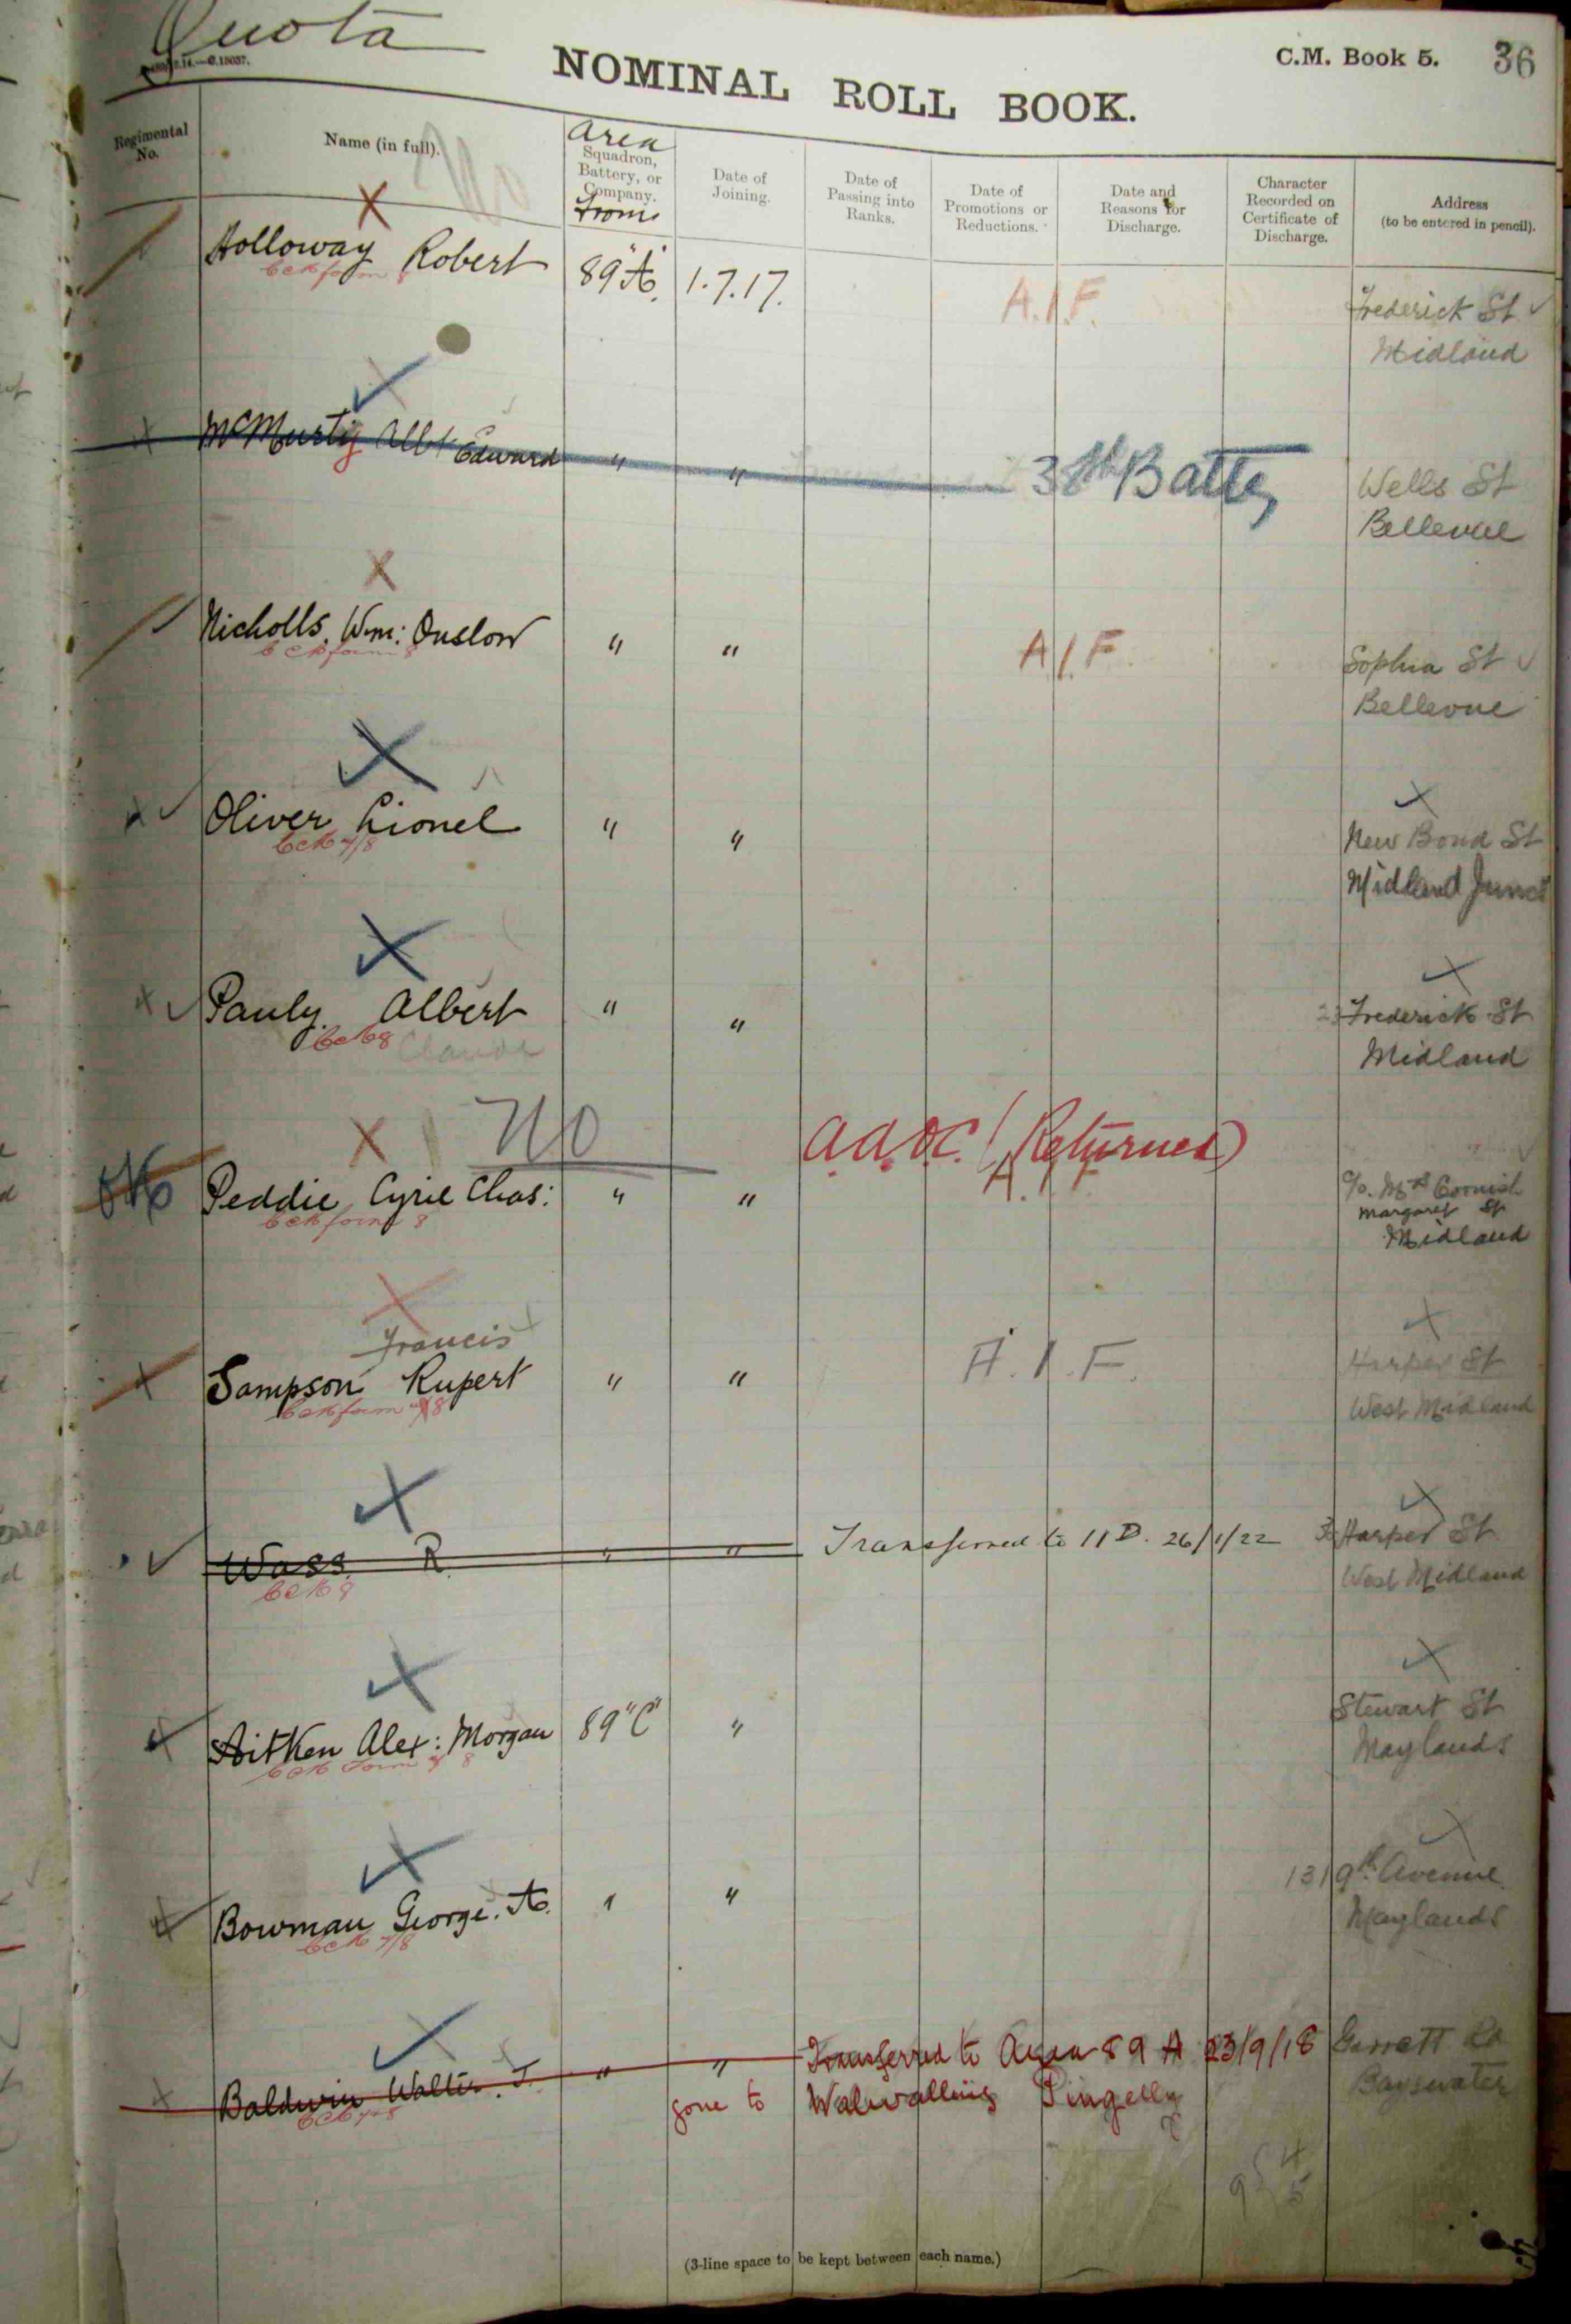 Quota
NOMINAL ROLL BOOK.
C.M. Book 5. 36
Regimental No.
Name (in full).
Area
Squadron, Battery, or Company.
from
Date of Joining.
Date of Passing into Ranks.
Date of Promotions or Reductions.
Date and Reasons for Discharge.
Character Recorded on Certificate of Discharge.
Address (to be entered in pencil).
Holloway Robert 89 "A" 1.7.17. A.I.F. Frederick St
form 8 Midland
McMurtry Albt Edward " " 38th Battey Wells St
Bellevue
Nicholls. Wm: Onslow " " A.I.F. Sophia St
form 8 Bellevue
Oliver Lionel " " New Bond St
7/8 Midland Junct
Pauly Albert " " 23 Frederick St
Claude Midland
NO
A.A.O.C. (Returned)
A.I.F.
Peddie Cyril Chas: " " c/o. Mrs Cornish
form 8 Margaret St
Midland
Francis
Sampson Rupert " " A.I.F. Harper St
form 8 West Midland
Wass. R. " " Transferred to 11 D. 26/1/22 Harper St
West Midland
Aitken Alex: Morgan 89 "C" " Stewart St
form 8 Maylands
Bowman George. A. " " 131 9th Avenue
7/8 Maylands
Baldwin Walter. J. " " Transferred to Area 89 A 23/9/18 Garratt Rd
gone to Walwalling Pingelly Bayswater
(3-line space to be kept between each name.)